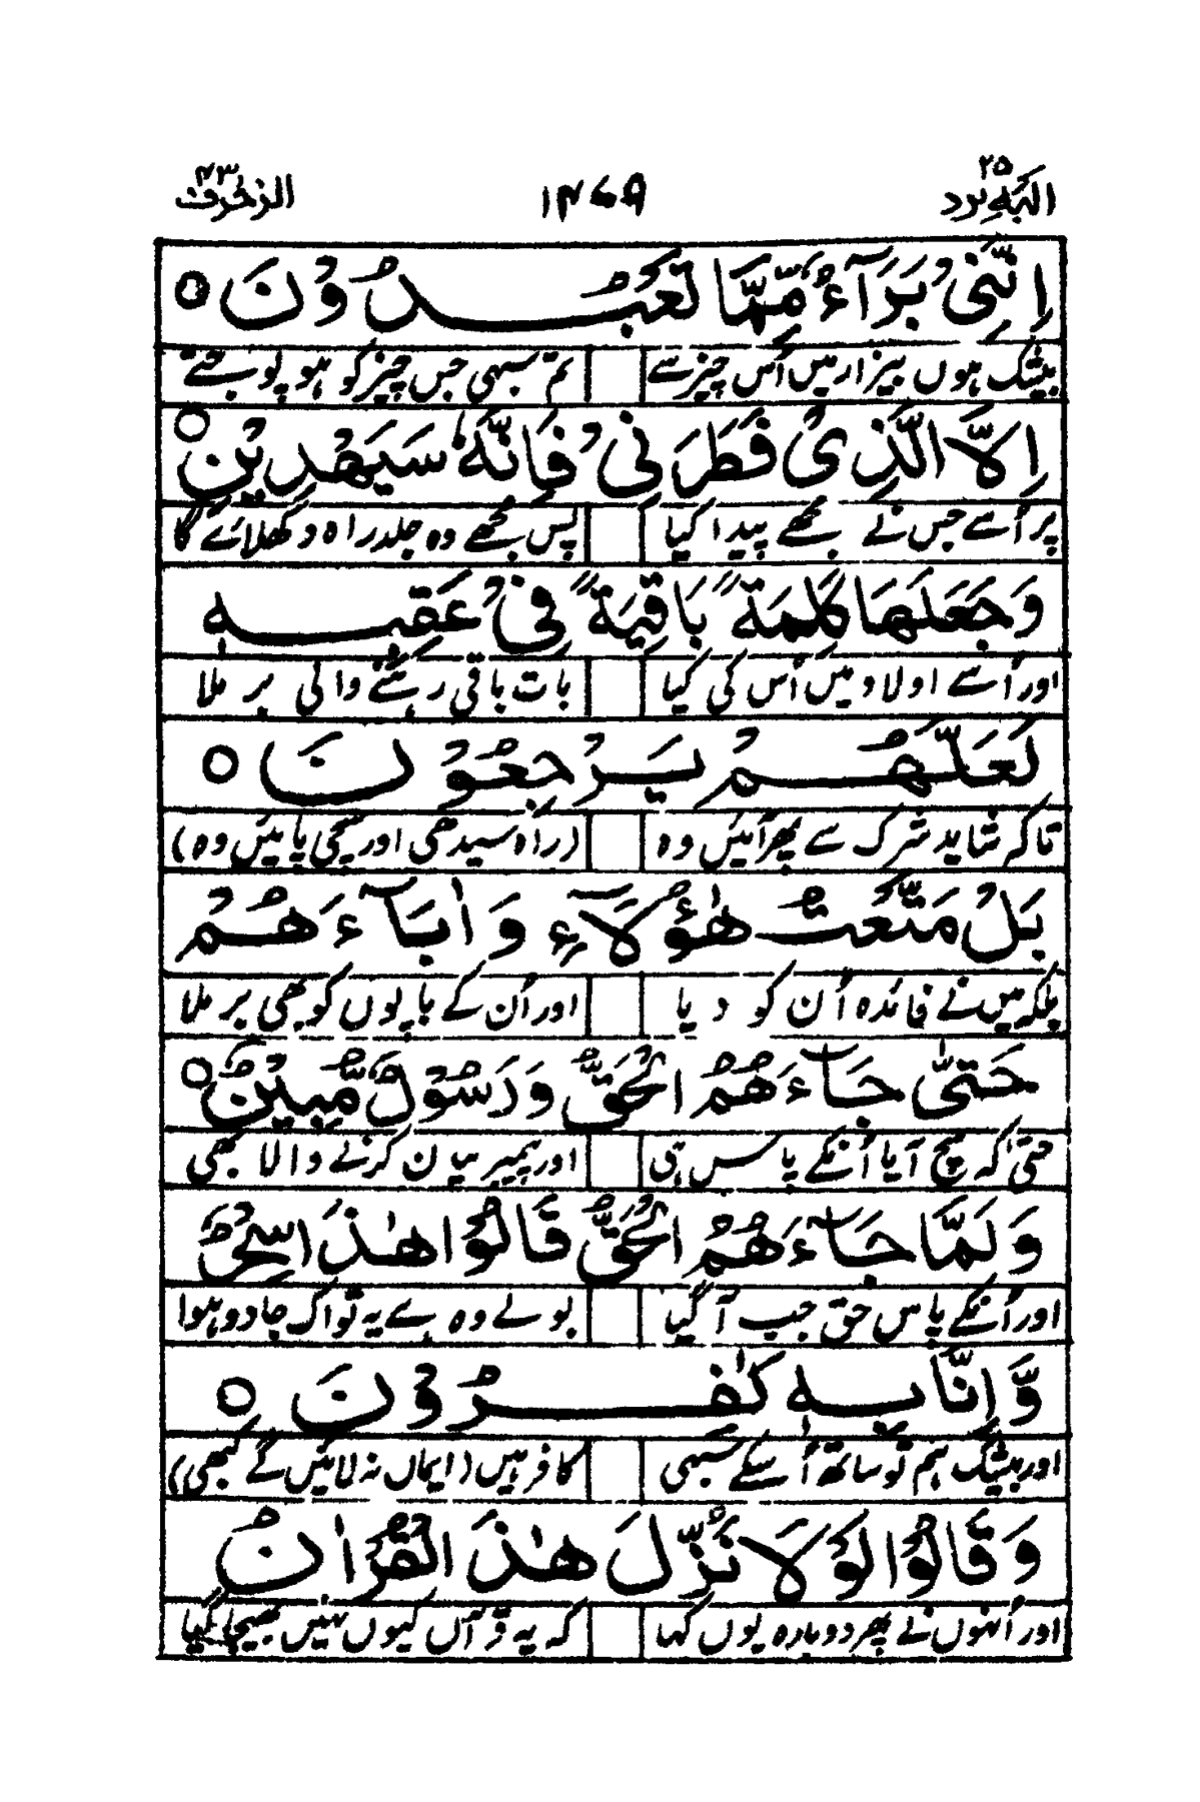 الیہ یرد ۲۵ ۱۴۷۹ الزخرف ۴۳
اِنَّنِیْ بَرَآءٌ مِّمَّا تَعْبُدُوْنَ ○
بیشک ہوں بیزار میں اُس چیز سے تم سبھی جس چیز کو ہو پوجتے
اِلَّا الَّذِیْ فَطَرَنِیْ فَاِنَّهٗ سَیَهْدِیْنِ ○
پر اُسے جس نے مجھے پیدا کیا پس مجھے وہ جلد راہ دکھلائے گا
وَجَعَلَهَا كَلِمَةً بَاقِیَةً فِیْ عَقِبِهٖ
اور اُسے اولاد میں اُس کی کیا بات باقی رہنے والی بر ملا
لَعَلَّهُمْ یَرْجِعُوْنَ ○
تاکہ شاید شرک سے پھر آئیں وہ (راہ سیدھی اور سچی پائیں وہ)
بَلْ مَتَّعْتُ هٰؤُلَآءِ وَاٰبَآءَهُمْ
بلکہ میں نے فائدہ اُن کو دیا اور اُن کے باپوں کو بھی بر ملا
حَتّٰی جَآءَهُمُ الْحَقُّ وَرَسُوْلٌ مُّبِیْنٌ ○
حتیٰ کہ سچ آیا اُنکے پاس ہی اور پیمبر بیان کرنے والا بھی
وَلَمَّا جَآءَهُمُ الْحَقُّ قَالُوْا هٰذَا سِحْرٌ
اور اُنکے پاس حق جب آ گیا بولے وہ ہے یہ تو اک جادو ہوا
وَّاِنَّا بِهٖ كٰفِرُوْنَ ○
اور بیشک ہم تو ساتھ اُسکے سبھی کافر ہیں (ایماں نہ لائیں گے کبھی)
وَقَالُوْا لَوْلَا نُزِّلَ هٰذَا الْقُرْاٰنُ
اور اُنہوں نے پھر دوبارہ یوں کہا کہ یہ قرآں کیوں نہیں بھیجا گیا